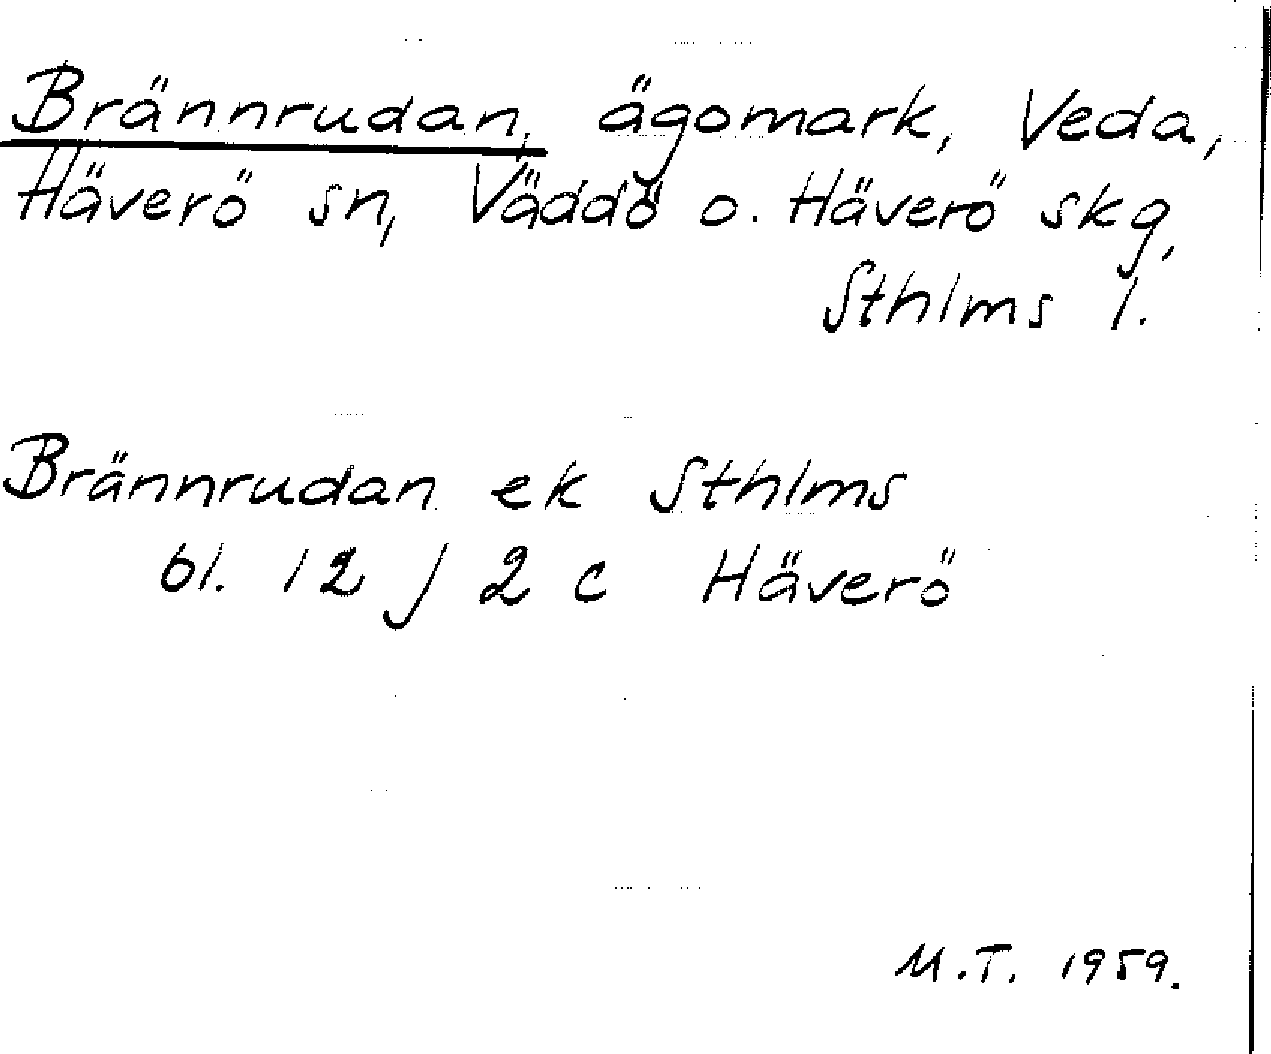 Brännrudan, ägomark, Veda,
Häverö sn, Väddö o. Häverö skg,
Sthlms l.
Brännrudan ek Sthlms
bl. 12 j 2 c Häverö
M.T. 1959.